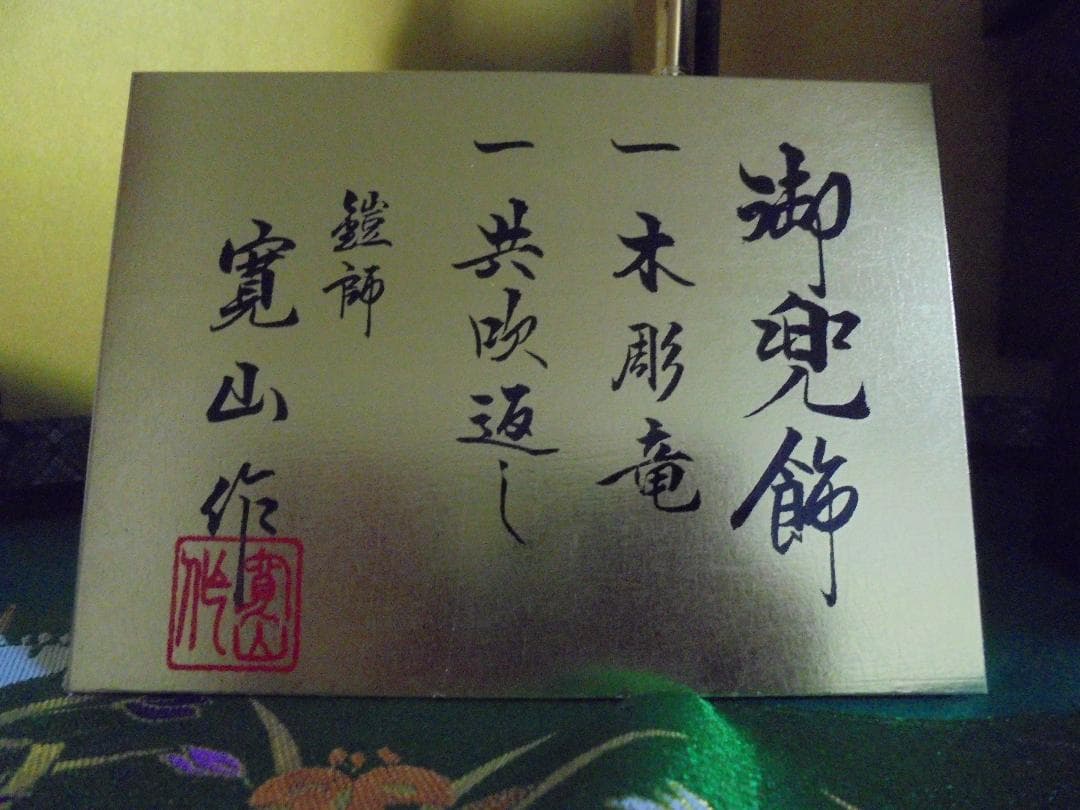 御兜飾
一木彫竜
一共吹返し
鎧師
寛山作
寛山作